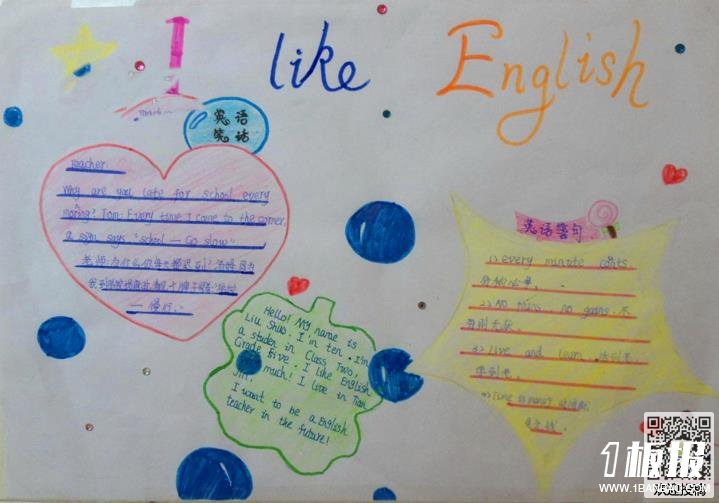 I like English
英语
笑话
Teacher:
Why are you late for school every
moring? Tom: Every time I come to the corner,
a sign says "school — Go slow"
老师:为什么你每天都迟到?汤姆:因为
— 慢行。"
Hello! My name is
Liu Shuo. I'm ten. I'm
a studen in Class Two,
Grade Five. I like English
much! I live in Tian
Jin.
I want to be a English
teacher in the future!
英语警句
1) every minute counts
分秒必争。
2) No pains, no gains. 不
劳则无获。
3) Live and learn. 活到老,
学到老。
4) Time is money
1板报
WWW.1BANBAO.COM
欢迎投稿